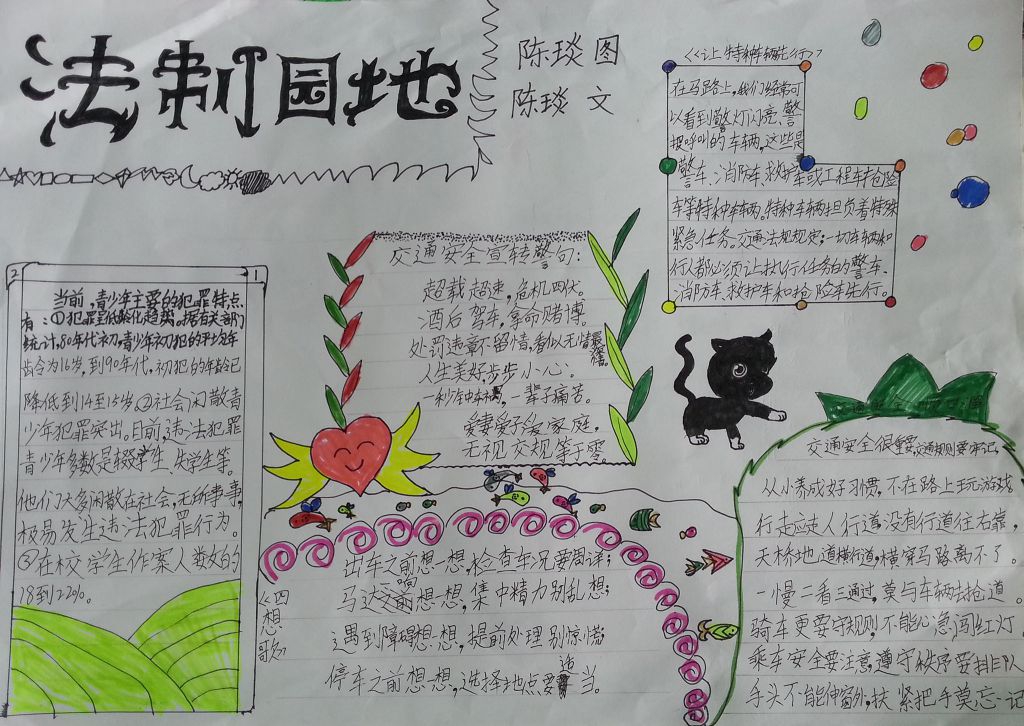 法制园地
陈琰 图
陈琰 文
《让特种车辆先行》
在马路上,我们经常可
以看到警灯闪亮、警
报呼叫的车辆,这些是
警车、消防车、救护车或工程车抢险
车等特种车辆。特种车辆担负着特殊
紧急任务。交通法规规定;一切车辆和
行人都必须让执行任务的警车、
消防车、救护车和抢险车先行。
2
1
当前,青少年主要的犯罪特点
有:①犯罪呈低龄化趋势。据有关部门
统计,80年代初,青少年初犯的平均年
齿令为16岁,到90年代,初犯的年龄已
降低到14至15岁。②社会闲散青
少年犯罪突出。目前,违法犯罪
青少年多数是辍学生、失学生等。
他们大多闲散在社会,无所事事,
极易发生违法犯罪行为。
③在校学生作案人数的
18到22%。
交通安全宣转警句:
超载超速,危机四伏。
酒后驾车,拿命赌博。
处罚违章不留情,看似无情最
人生美好步步小心。
一辈子痛苦。
爱妻爱子爱家庭,
无视交规等于零
《四想歌》
出车之前想一想,检查车况要周详;
马达一响想一想,集中精力别乱想;
遇到障碍想一想,提前处理别惊慌;
停车之前想一想,选择地点要适当。
交通安全很重要,交通规则要牢记,
从小养成好习惯,不在路上玩游戏
行走应走人行道,没有行道往右靠,
天桥地道横行道,横穿马路离不了。
一慢二看三通过,莫与车辆去抢道。
骑车更要守规则,不能心急闯红灯
乘车安全要注意,遵守秩序要排队
手头不能伸窗外,扶紧把手莫忘记